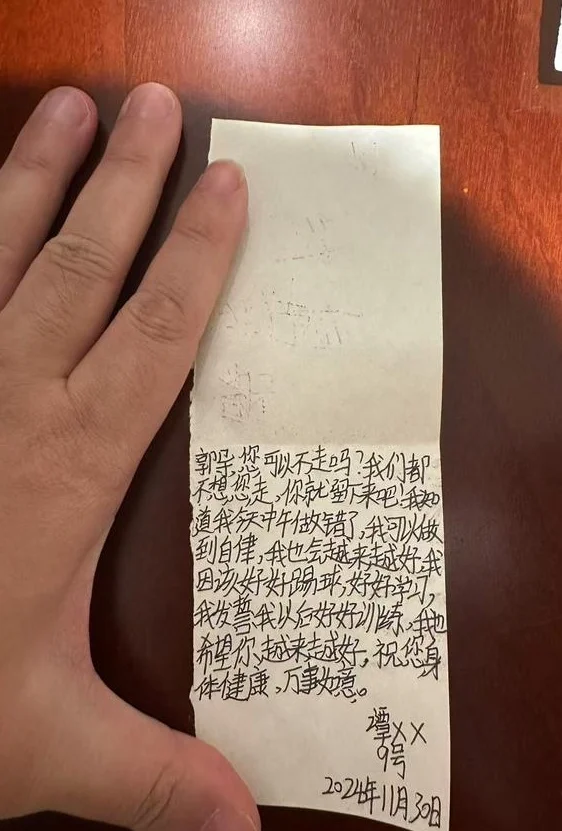 郭导,您可以不走吗?我们都
不想您走,你就留下来吧!我知
道我今天中午做错了,我可以做
到自律,我也会越来越好,我
因该好好踢球,好好学习,
我发誓我以后好好训练,我也
希望你越来越好,祝您身
体健康,万事如意。
谭XX
9号
2024年11月30日